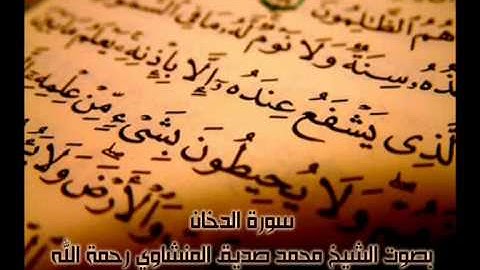 هُمُ الظَّٰلِمُونَ
سِنَةٌ وَلَا نَوْمٌ لَّهُۥ مَا فِى السَّمَٰوَٰ
يَشْفَعُ عِندَهُۥٓ إِلَّا بِإِذْنِهِۦ يَعْلَمُ مَا بَيْنَ
وَلَا يُحِيطُونَ بِشَىْءٍ مِّنْ عِلْمِهِۦٓ
وَالْأَرْضَ وَلَا
سورة الدخان
بصوت الشيخ محمد صديق المنشاوي رحمة الله